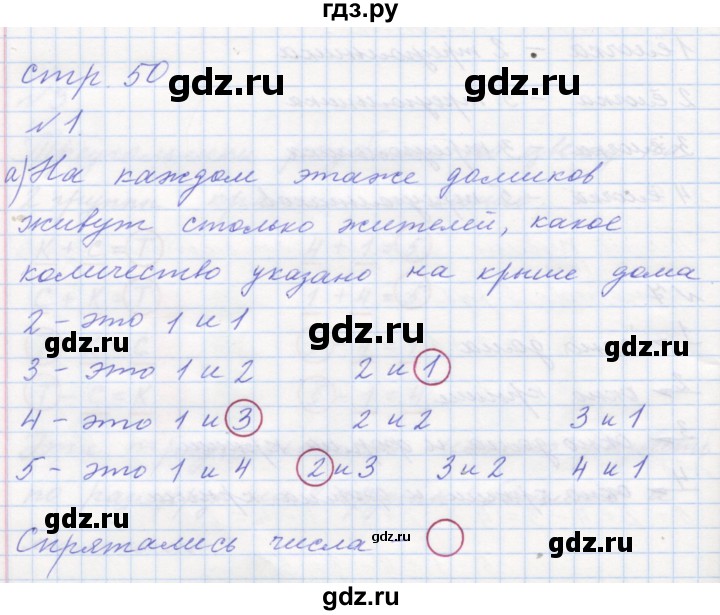 гдз.ру
стр. 50
gdz.ru gdz.ru
№1
а) На каждом этаже домиков
gdz.ru gdz.ru
живут столько жителей, какое
количество указано на крыше дома
gdz.ru gdz.ru
2 - это 1 и 1
gdz.ru gdz.ru gdz.ru
3 - это 1 и 2 2 и 1
4 - это 1 и 3 2 и 2 3 и 1
gdz.ru gdz.ru
5 - это 1 и 4 2 и 3 3 и 2 4 и 1
gdz.ru gdz.ru gdz.ru
Спрятались числа
gdz.ru